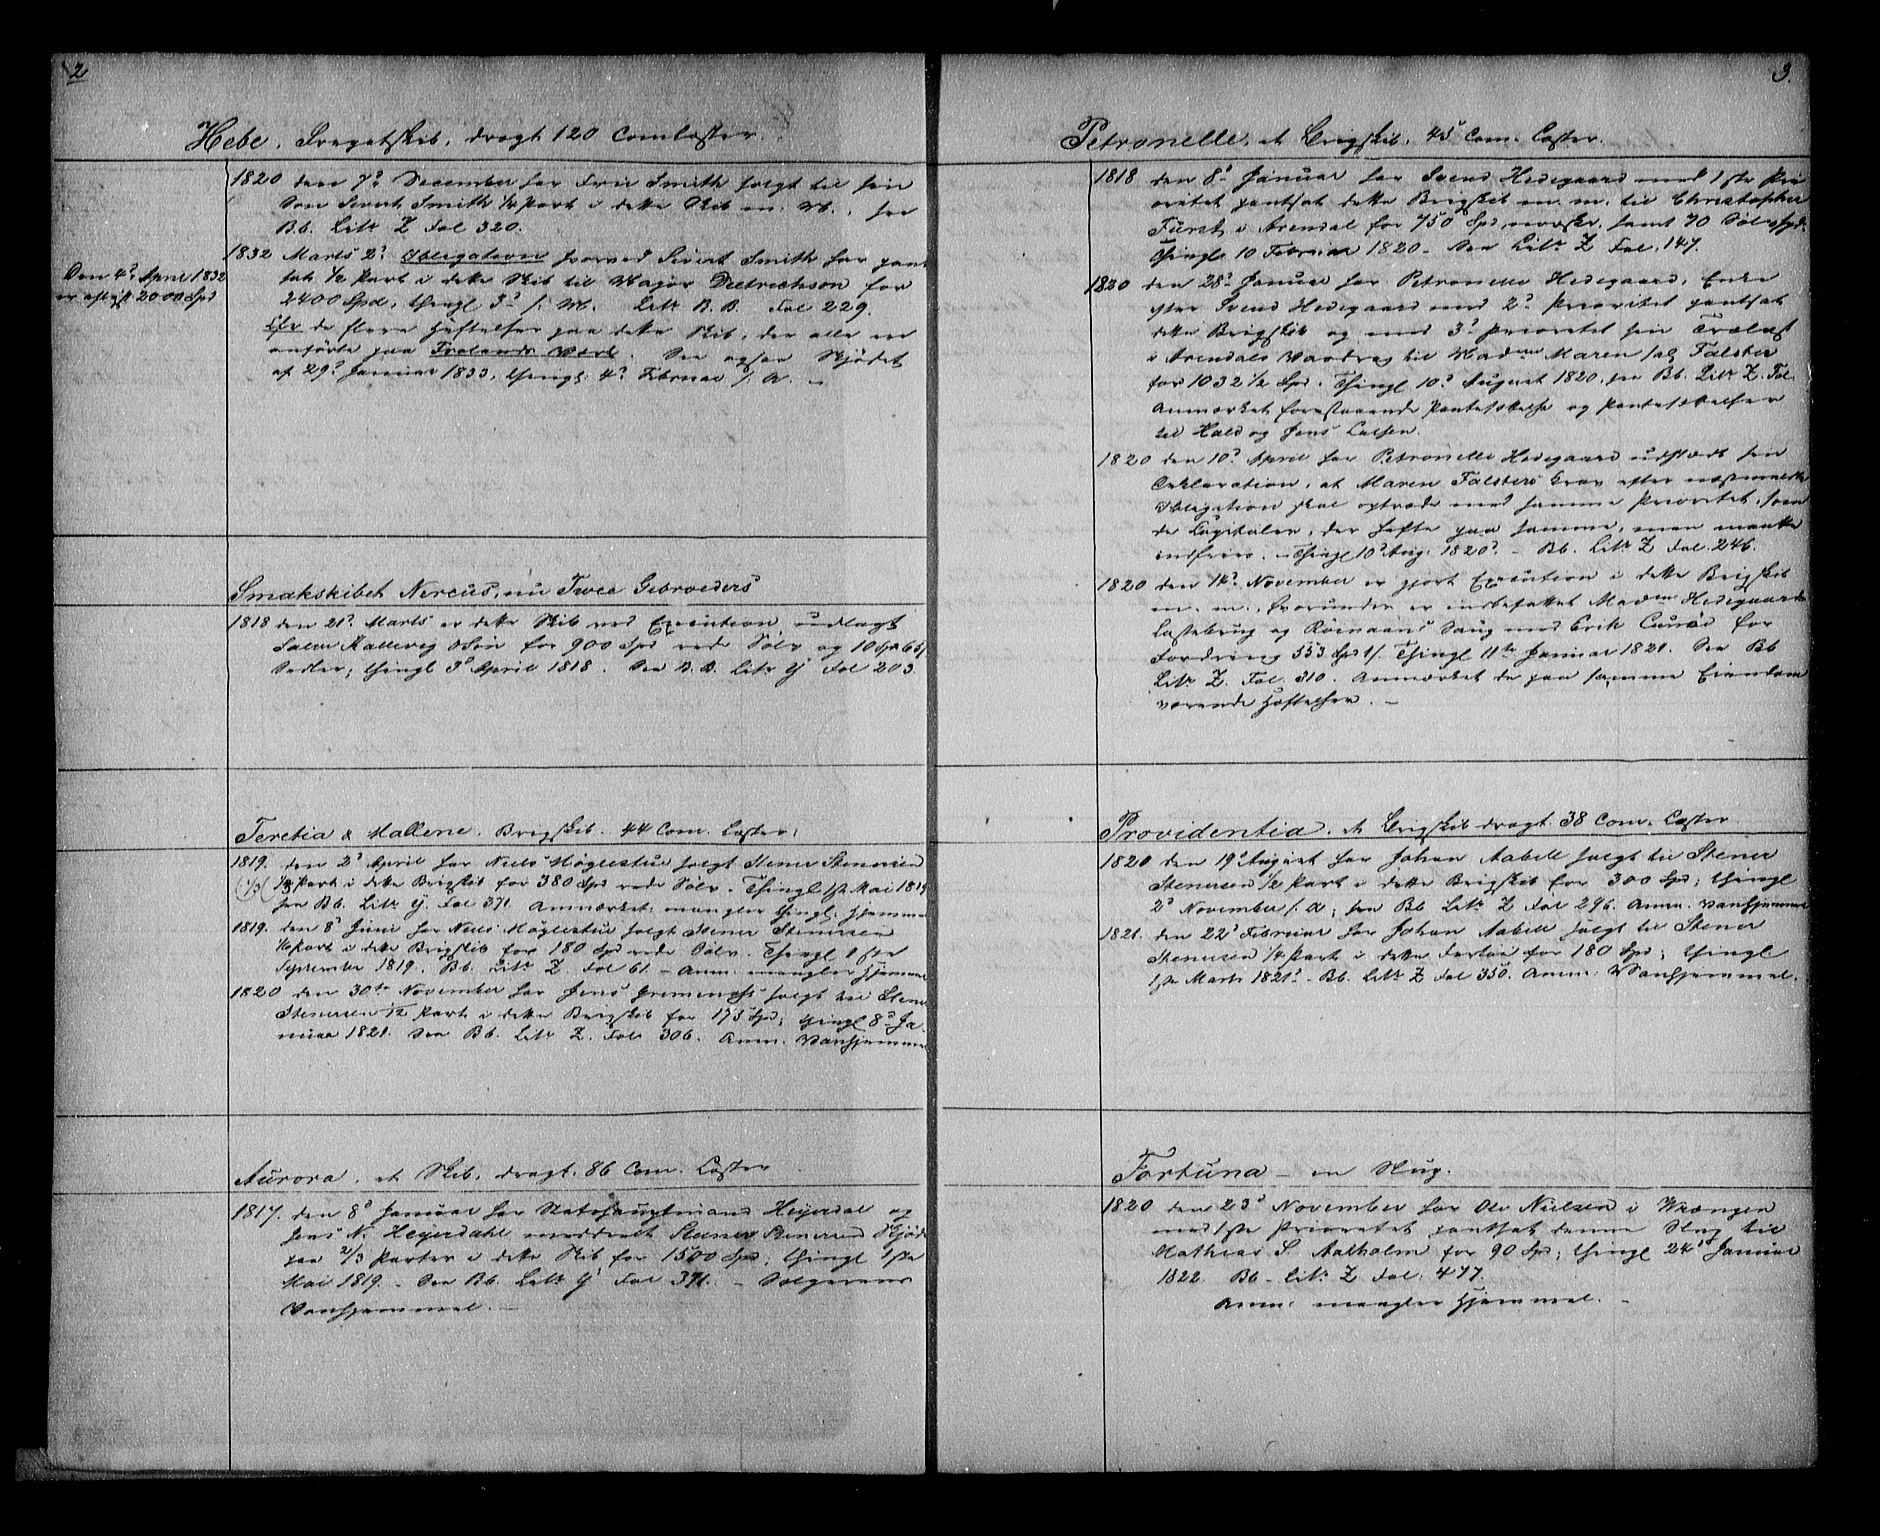 2
Hebe, Fregatskib, drægt 120 Comlæster.
1820 den 7de December har Frue Smith solgt til sin
Søn Sivert Smith 1/4 Part i dette Skib m. M., see
B.b. Litr Z Fol 320.
1832 Marts 2d Obligation hvorved Sivert Smith har pant-
sat 1/2 Part i dette Skib til Major Dietrichson for
2400 Spd, thingl 3d s: M. Litr B. B. Fol 229.
Obs de flere Hæftelser paa dette Skib, der alle ere
anførte paa Frolands Værk. See ogsaa Skjødet
af 29d Januar 1833, thingl: 4d Februar s: A. –
Den 4d April 1832
er aflyst 2000 Spd
Smakskibet Nereus, nu Twee Gebroeders
1818 den 21d Marts er dette Skib ved Execution udlagt
Salve Kallevig & Søn for 900 Spd rede Sølv og 10 Spd
Sedler, thingl 3d April 1818. See B. B. Litr Y Fol 203.
Teretia & Mallene, Brigskib. 44 Com. Læster.
1819. den 2d April har Niels Møglestue solgt Stener Stenersen
(1/3) 1/3 Part i dette Brigskib for 380 Spd rede Sølv. Thingl 1ste Mai 1819
see Bb. Litr Y Fol 371. Anmærket: mangler thingl: Hjemmel
1819. den 8d Juni har Niels Møglestue solgt Stener Stenersen
Part i dette Brigskib for 180 Spd rede Sølv. Thingl 1ste
September 1819. Bb. Litr Z Fol 61. – Anm: mangler Hjemmel
1820 den 30te November har Jens Gremengs solgt til Stener
Stenersen 1/12 Part i dette Brigskib for 175 Spd; thingl 8d Ja-
nuar 1821. See Bb. Litr Z. Fol 306. Anm. Vanhjemmel
Aurora, et Skib, drægt. 86 Com. Læster
1817. den 8d Januar har Statshauptmand Heyerdal og
Jens N. Heyerdahl meddeelt Stener Stenersen Skjøde
paa 2/3 Parter i dette Skib for 1500 Spd; thingl 1ste
Mai 1819. See Bb Litr Y Fol 371. – Sælgerens
Vanhjemmel. –
3.
Petronelle, et Brigskib, 45 Com. Læster.
1818 den 8d Januar har Svend Hedegaard med 1ste Pri-
oritet pantsat dette Brigskib m. m. til Christopher
Fürst i Arendal for 750 Spd norske, samt 70 Sølvspd.
Thingl 10 Februar 1820 – See Litr Z Fol. 147.
1820 den 28d Januar har Petronelle Hedegaard, Enke
efter Svend Hedegaard med 2d Prioritet pantsat
dette Brigskib og med 3d Prioritet sin Trælast
i Arendals Vasdrag til Madme Maren sal Falster
for 1032 1/2 Spd. Thingl 10d August 1820, see Bb. Litr Z. Fol.
Anmærket foranstaaende Panthæftelse og Panthæftelser
til Hald og Jens Larsen.
1820 den 10d April har Petronelle Hedegaard udstædt sin
Deklaration, at Maren Falsters Krav efter næstmeldte
Obligation skal optræde med samme Prioritet, som
de Capitaler, der hæfte paa samme, man maatte
indfrie. – Thingl 10d Aug: 1820d. – Bb. Litr Z Fol. 246.
1820 den 14d November er gjort Execution i dette Brigskib
m. m., hvorunder er indbefattet Madm Hedegaards
Lastebrug og Saug med Erik for
Fordring 553 Spd Thingl 11te Januar 1821. See Bb
Litr Z. Fol. 310. Anmærket de paa samme Eiendom
værende Hæftelser. –
Providentia, et Brigskib drægt. 38 Com. Læster
1820 den 19d August har Johan Aabell solgt til Stener
Stenersen 1/2 Part i dette Brigskib for 300 Spd; thingl
2d November s. A; see Bb Litr Z Fol 296. Anm. Vanhjemmel
1821. den 22d Februar har Johan Aabell solgt til Stener
Stenersen 1/4 Part i dette Fartøi for 180 Spd; thingl
1ste Marts 1821d. – Bb. Litr Z Fol 350. Anm: Vanhjemmel.
Fortuna – en Slup.
1820 den 23d November har Ole Nielsen i Wrængen
med 1ste Prioritet pantsat denne Slup til
Mathias S. Aalholm for 90 Spd; thingl 24d Januar
1822. Bb – Litr Z Fol: 477.
Anm: mangler Hjemmel. –